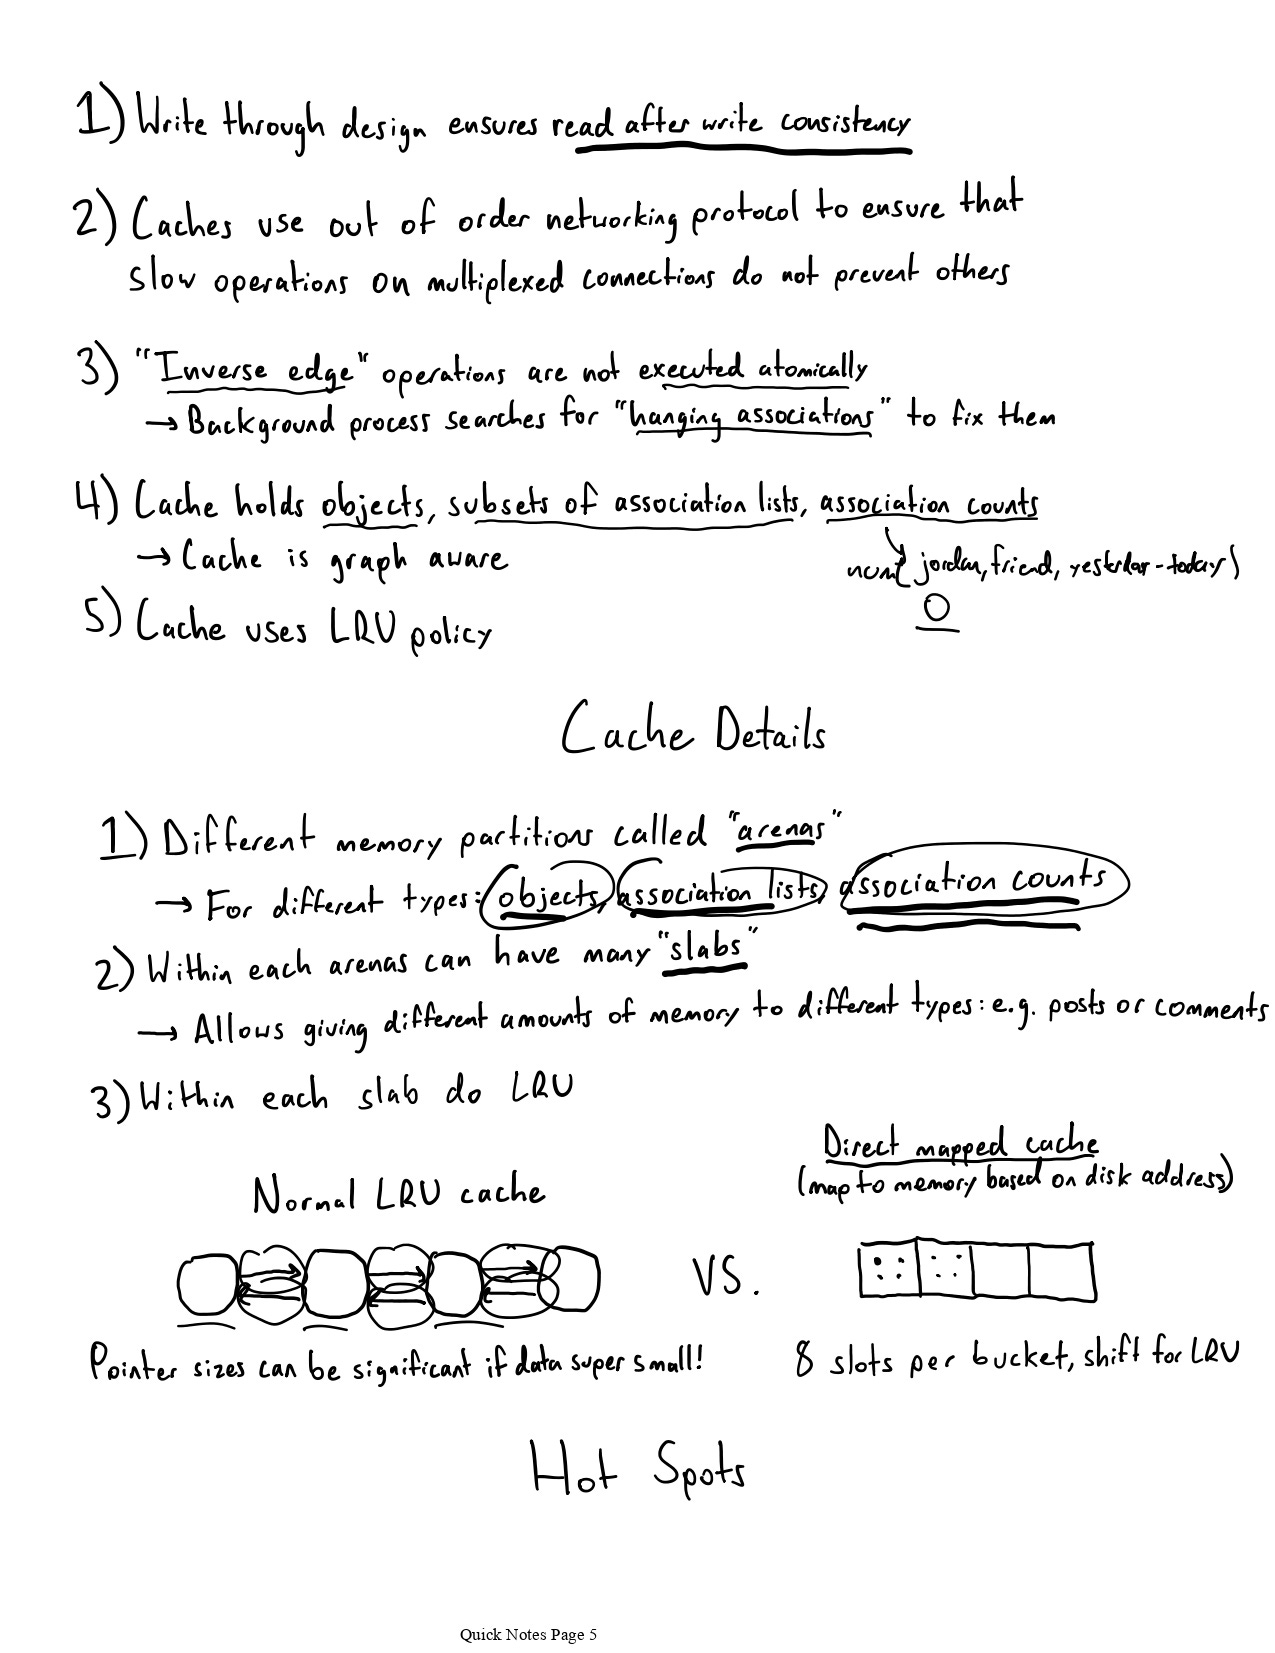 1) Write through design ensures read after write consistency
2) Caches use out of order networking protocol to ensure that
slow operations on multiplexed connections do not prevent others
3) "Inverse edge" operations are not executed atomically
→ Background process searches for "hanging associations" to fix them
4) Cache holds objects, subsets of association lists, association counts
→ Cache is graph aware
num(jordan, friend, yesterday-today)
0
5) Cache uses LRU policy
Cache Details
1) Different memory partitions called "arenas"
→ For different types: objects, association lists, association counts
2) Within each arenas can have many "slabs"
→ Allows giving different amounts of memory to different types: e.g. posts or comments
3) Within each slab do LRU
Normal LRU cache
VS.
Direct mapped cache
(map to memory based on disk address)
Pointer sizes can be significant if data super small!
8 slots per bucket, shift for LRU
Hot Spots
Quick Notes Page 5